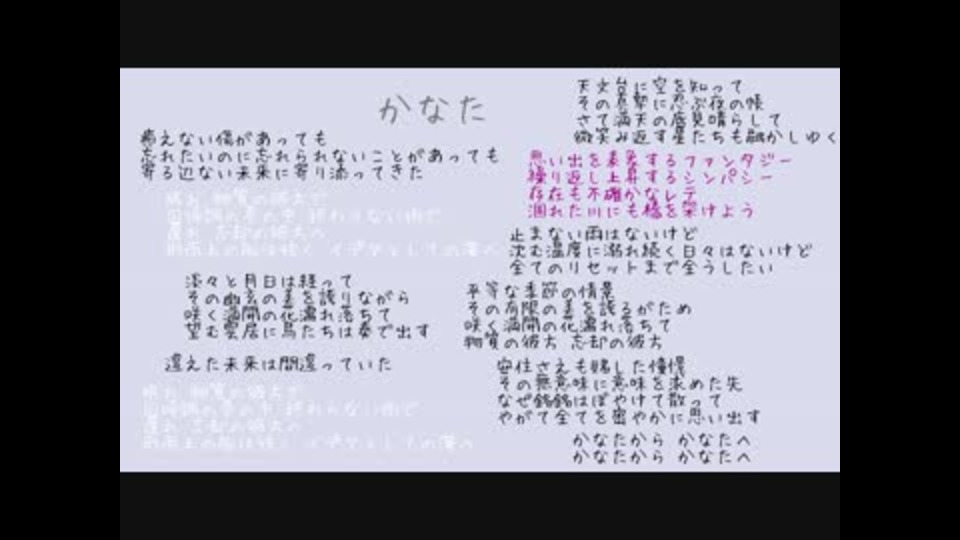 かなた
癒えない傷があっても
忘れたいのに忘れられないことがあっても
寄る辺ない未来に寄り添ってきた
物質の彼方で
忘却の彼方へ
淡々と月日は経って
その幽玄の美を誇りながら
咲く満開の花濡れ落ちて
望む雲居に鳥たちは奏で出す
違えた未来は間違っていた
物質の彼方で
忘却の彼方へ
天文台に空を知って
その真摯に忍ぶ夜の帳
さて満天の底見晴らして
微笑み返す星たちも融かしゆく
思い出を表象するファンタジー
繰り返し上昇するシンパシー
存在も不確かなレテ
涸れた川にも橋を架けよう
止まない雨はないけど
沈む温度に溺れ続く日々はないけど
全てのリセットまで全うしたい
平等な季節の情景
その有限の美を誇るがため
咲く満開の花濡れ落ちて
物質の彼方 忘却の彼方
安住さえも賭した憧憬
その無意味に意味を求めた先
なぜ銘銘はぼやけて散って
やがて全てを密やかに思い出す
かなたから かなたへ
かなたから かなたへ